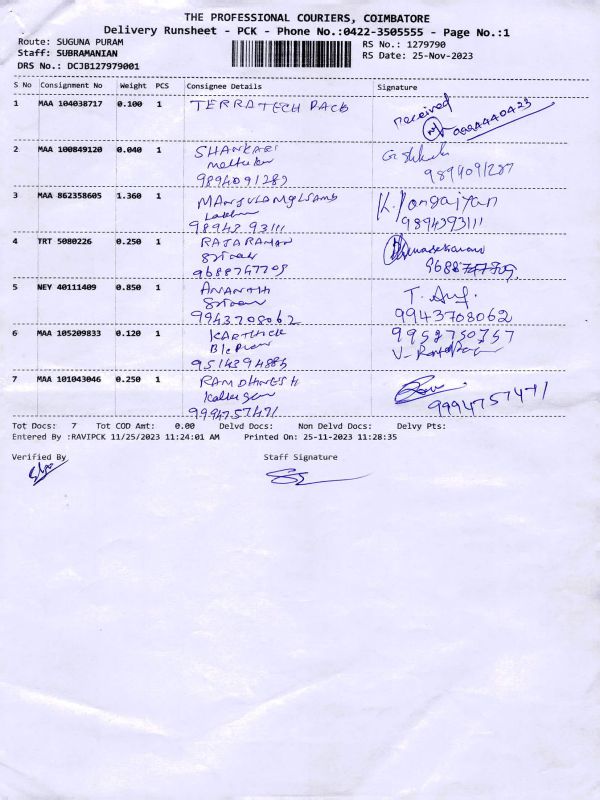 THE PROFESSIONAL COURIERS, COIMBATORE
Delivery Runsheet - PCK - Phone No.:0422-3505555 - Page No.:1
Route: SUGUNA PURAM
RS No.: 1279790
Staff: SUBRAMANIAN
RS Date: 25-Nov-2023
DRS No.: DCJB127979001
S No Consignment No Weight PCS Consignee Details Signature
1 MAA 104038717 0.100 1 TERRATECH PACK received
2 MAA 100849120 0.040 1 SHANKARI
9894091287 9894091287
3 MAA 862358605 1.360 1 K. Pongaiyan
9894393111 9894393111
4 TRT 5080226 0.250 1 RAJARAMAN
9688747709
5 NEY 40111409 0.850 1 ANANTHI
9943708062 9943708062
6 MAA 105209833 0.120 1 KARTHICK 9952750757
7 MAA 101043046 0.250 1 RAMDHINESH
9994757471 9994757471
Tot Docs: 7 Tot COD Amt: 0.00 Delvd Docs: Non Delvd Docs: Delvy Pts:
Entered By :RAVIPCK 11/25/2023 11:24:01 AM Printed On: 25-11-2023 11:28:35
Verified By Staff Signature